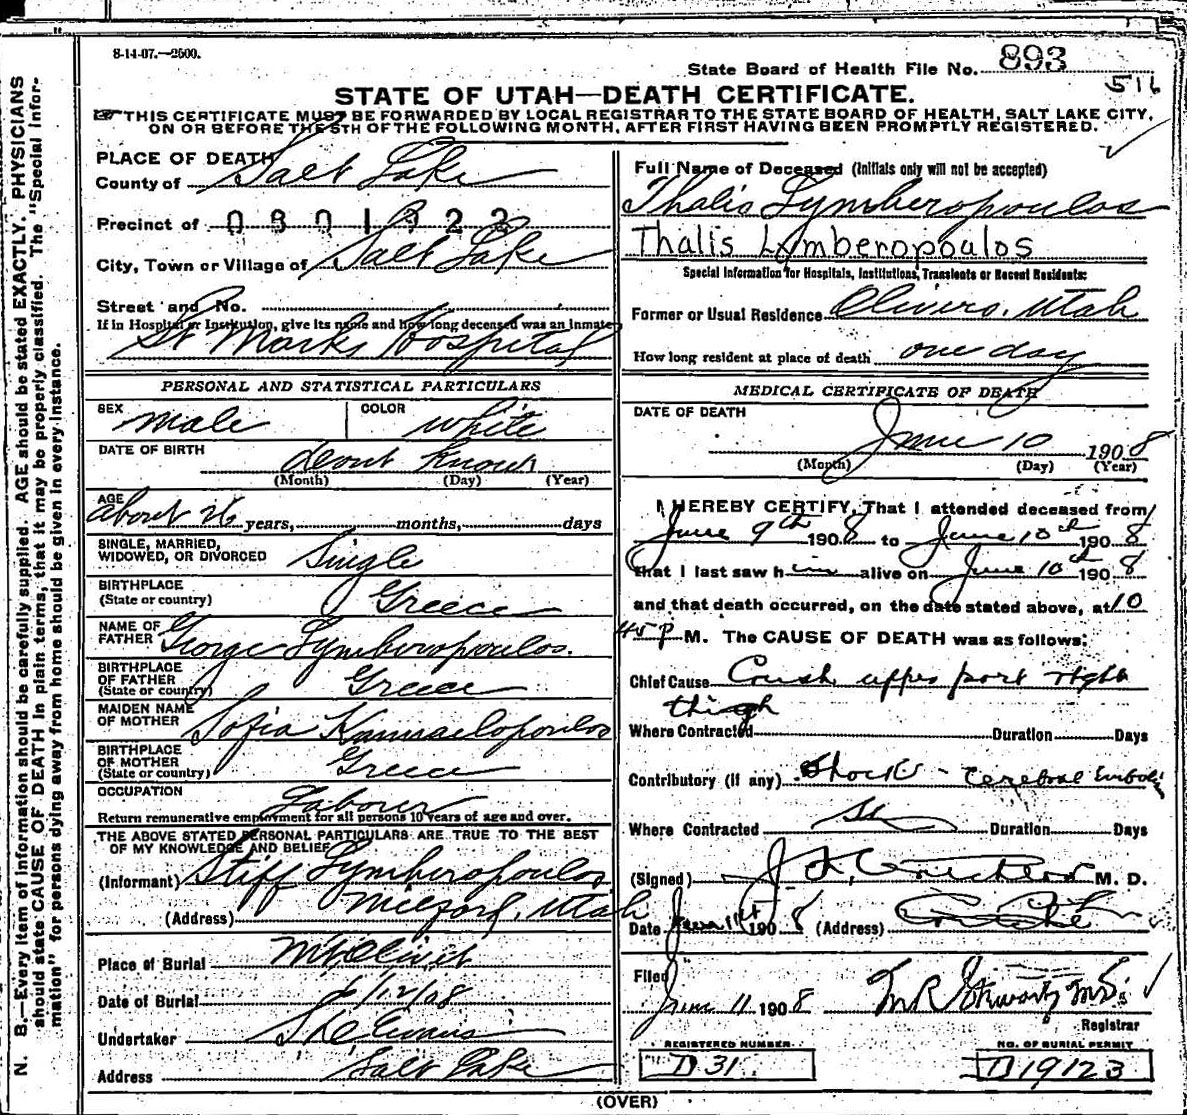 8-14-07.—2500.
State Board of Health File No. 893
516
STATE OF UTAH—DEATH CERTIFICATE.
THIS CERTIFICATE MUST BE FORWARDED BY LOCAL REGISTRAR TO THE STATE BOARD OF HEALTH, SALT LAKE CITY,
ON OR BEFORE THE 5TH OF THE FOLLOWING MONTH, AFTER FIRST HAVING BEEN PROMPTLY REGISTERED.
N. B.—Every item of information should be carefully supplied. AGE should be stated EXACTLY. PHYSICIANS
should state CAUSE OF DEATH in plain terms, that it may be properly classified. The "Special Infor-
mation" for persons dying away from home should be given in every instance.
PLACE OF DEATH
County of Salt Lake
Precinct of 0301923
City, Town or Village of Salt Lake
Street and No.
If in Hospital or Institution, give its name and how long deceased was an inmate
St Marks Hospital
PERSONAL AND STATISTICAL PARTICULARS
SEX male COLOR white
DATE OF BIRTH dont know
(Month) (Day) (Year)
AGE about 26 years, months, days
SINGLE, MARRIED,
WIDOWED, OR DIVORCED Single
BIRTHPLACE
(State or country) Greece
NAME OF
FATHER George Lymberopoulos.
BIRTHPLACE
OF FATHER
(State or country) Greece
MAIDEN NAME
OF MOTHER Sofia
BIRTHPLACE
OF MOTHER
(State or country) Greece
OCCUPATION Laborer
Return remunerative employment for all persons 10 years of age and over.
THE ABOVE STATED PERSONAL PARTICULARS ARE TRUE TO THE BEST
OF MY KNOWLEDGE AND BELIEF
(Informant) Stiff Lymberopoulos
(Address) Milford, Utah
Place of Burial Mt Olivet
Date of Burial 6/12/08
Undertaker Evans
Address Salt Lake
Full Name of Deceased (Initials only will not be accepted)
Thalis Lymberopoulos
Thalis Lymberopoulos
Special Information for Hospitals, Institutions, Transients or Recent Residents:
Former or Usual Residence Olivers, Utah
How long resident at place of death one day
MEDICAL CERTIFICATE OF DEATH
DATE OF DEATH
June 10 1908
(Month) (Day) (Year)
I HEREBY CERTIFY, That I attended deceased from
June 9th 1908 to June 10th 1908
that I last saw him alive on June 10th 1908
and that death occurred, on the date stated above, at 10
45 P M. The CAUSE OF DEATH was as follows:
Chief Cause Crush upper part right
thigh
Where Contracted Duration Days
Contributory (if any) Shock - Cerebral Emboli
Where Contracted Duration Days
(Signed) M. D.
Date June 11th 1908 (Address)
Filed
June 11 1908
Registrar
REGISTERED NUMBER NO. OF BURIAL PERMIT
D 31 D 19123
(OVER)